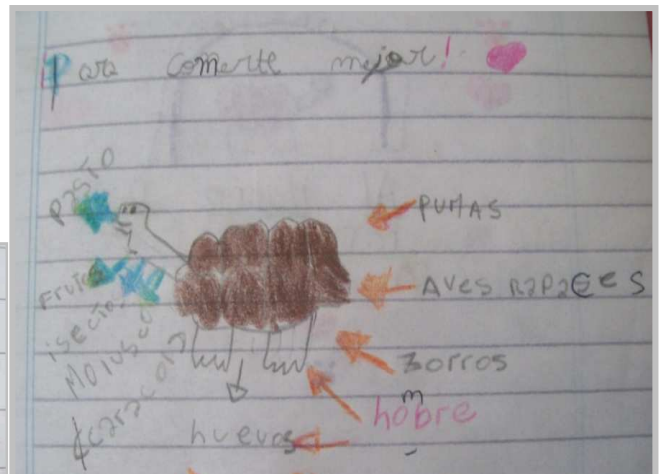 Para comerte mejor!
pasto
Frutas
isectos
Moluscos
caracol
PUMAS
Aves R2P2CeS
Zorros
hombre
huevos